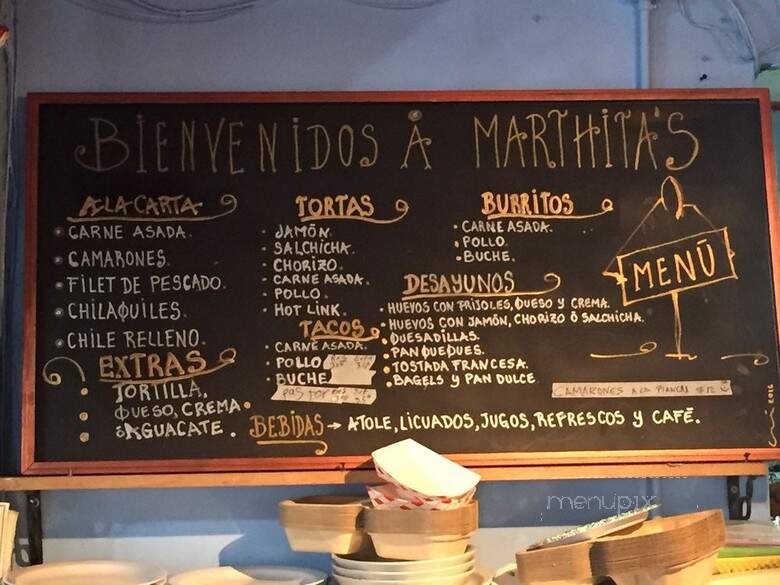 BIENVENIDOS A MARTHITA'S
A LA CARTA
CARNE ASADA.
CAMARONES.
FILET DE PESCADO.
CHILAQUILES.
CHILE RELLENO.
EXTRAS
TORTILLA.
QUESO, CREMA
ò AGUACATE.
TORTAS
JAMÓN.
SALCHICHA.
CHORIZO.
CARNE ASADA.
POLLO.
HOT LINK.
TACOS
CARNE ASADA.
POLLO
BUCHE
pastor
BURRITOS
CARNE ASADA.
POLLO.
BUCHE.
DESAYUNOS
HUEVOS CON FRIJOLES, QUESO Y CREMA.
HUEVOS CON JAMÓN, CHORIZO ò SALCHICHA.
QUESADILLAS.
PANQUEQUES.
TOSTADA FRANCESA.
BAGELS Y PAN DULCE
MENÚ
CAMARONES A LA PLANCHA $12
BEBIDAS → ATOLE, LICUADOS, JUGOS, REFRESCOS Y CAFÉ.
menupix